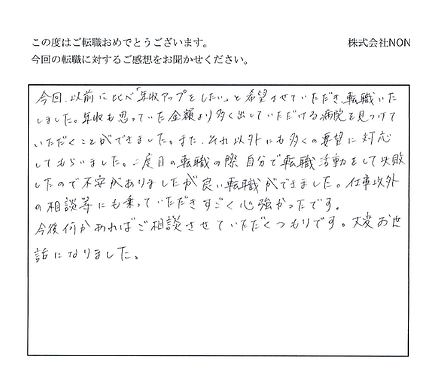 この度はご転職おめでとうございます。 株式会社NON
今回の転職に対するご感想をお聞かせください。
今回、以前に比べ「年収アップをしたい」と希望させていただき、転職いた
しました。年収も思っていた金額より多く出していただける病院を見つけて
いただくことができました。また、それ以外にも多くの要望に対応
してもらいました。二度目の転職の際、自分で転職活動をして失敗
したので不安がありましたが良い転職ができました。仕事以外
の相談等にも乗っていただきすごく心強かったです。
今後何かあればご相談させていただくつもりです。大変お世
話になりました。